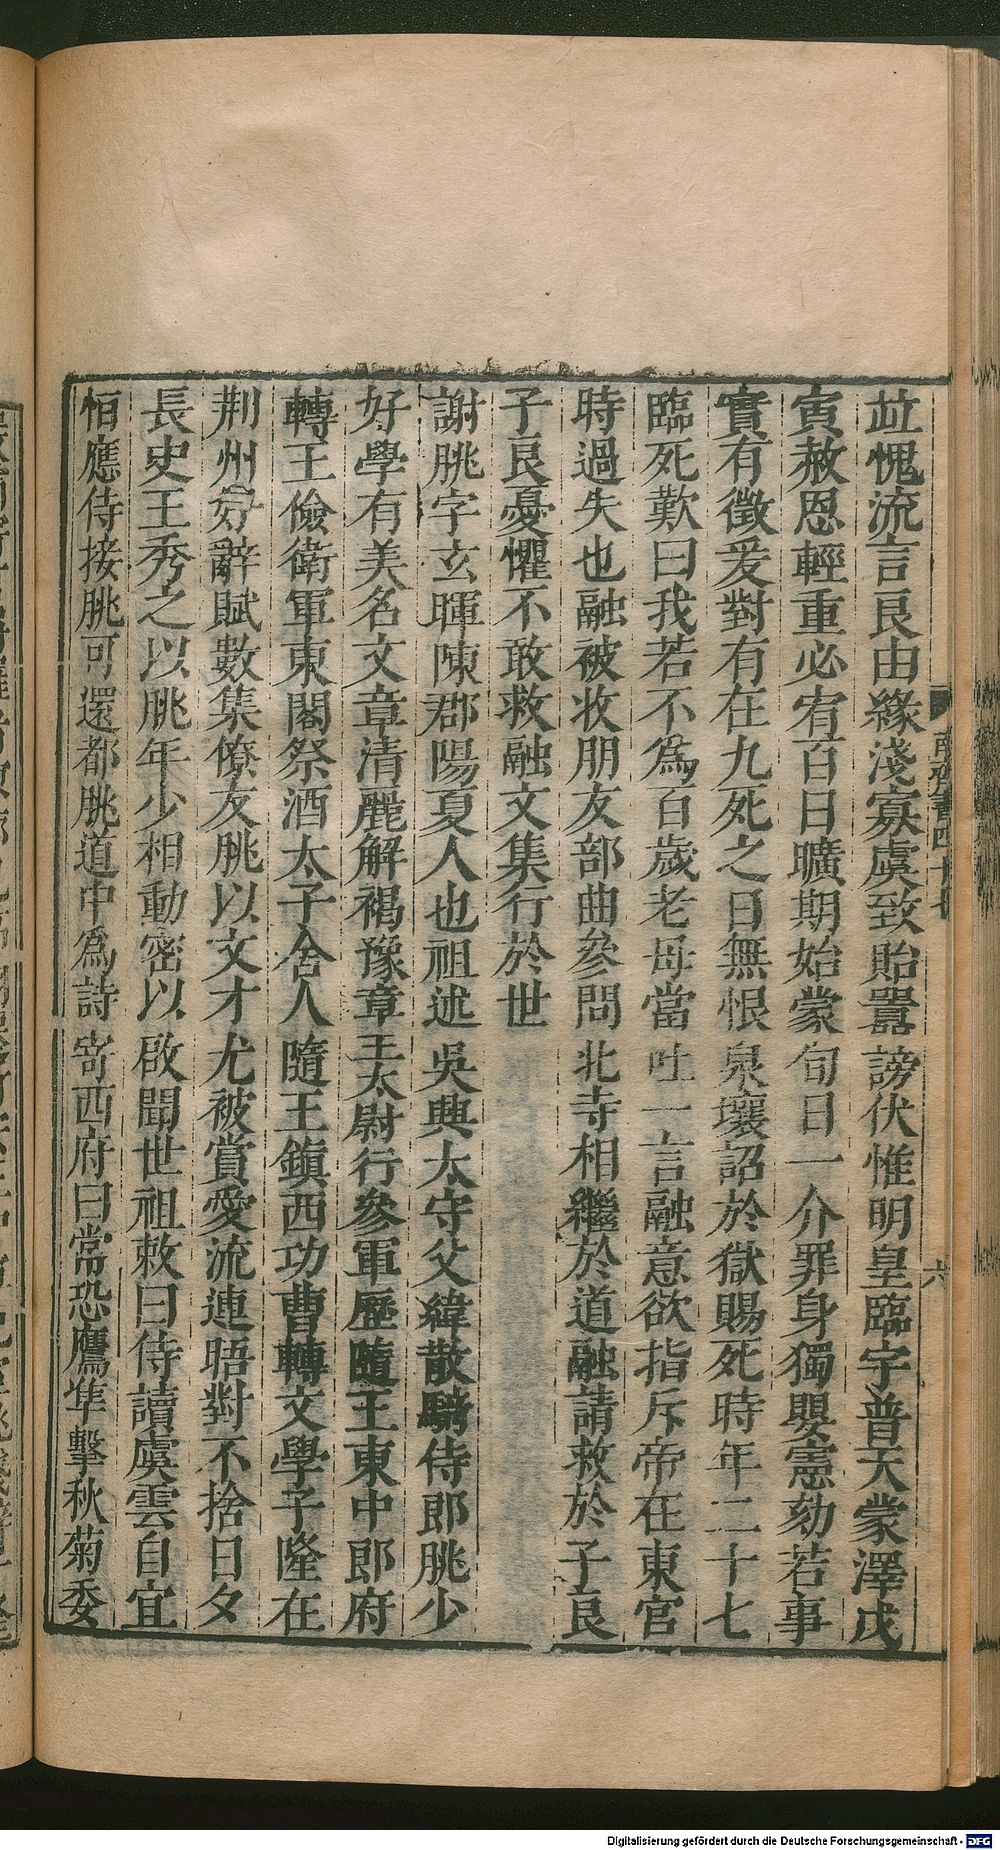 並愧流言良由緣淺寡虞致貽囂謗伏惟明皇臨宇普天蒙澤戊
寅赦恩輕重必宥百日曠期始蒙旬日一介罪身獨嬰憲劾若事
實有徵爰對有在九死之日無恨泉壤詔於獄賜死時年二十七
臨死歎曰我若不為百歲老母當吐一言融意欲指斥帝在東宮
時過失也融被收朋友部曲參問北寺相繼於道融請救於子良
子良憂懼不敢救融文集行於世
謝朓字玄暉陳郡陽夏人也祖述吳興太守父緯散騎侍郎朓少
好學有美名文章清麗解褐豫章王太尉行參軍歷隨王東中郎府
轉王儉衛軍東閣祭酒太子舍人隨王鎮西功曹轉文學子隆在
荆州好辭賦數集僚友朓以文才尤被賞愛流連晤對不捨日夕
長史王秀之以朓年少相動密以啟聞世祖敕曰侍讀虞雲自宜
恒應侍接朓可還都朓道中為詩寄西府曰常恐鷹隼擊秋菊委
南齊書四十七
六
Digitalisierung gefördert durch die Deutsche Forschungsgemeinschaft - DFG